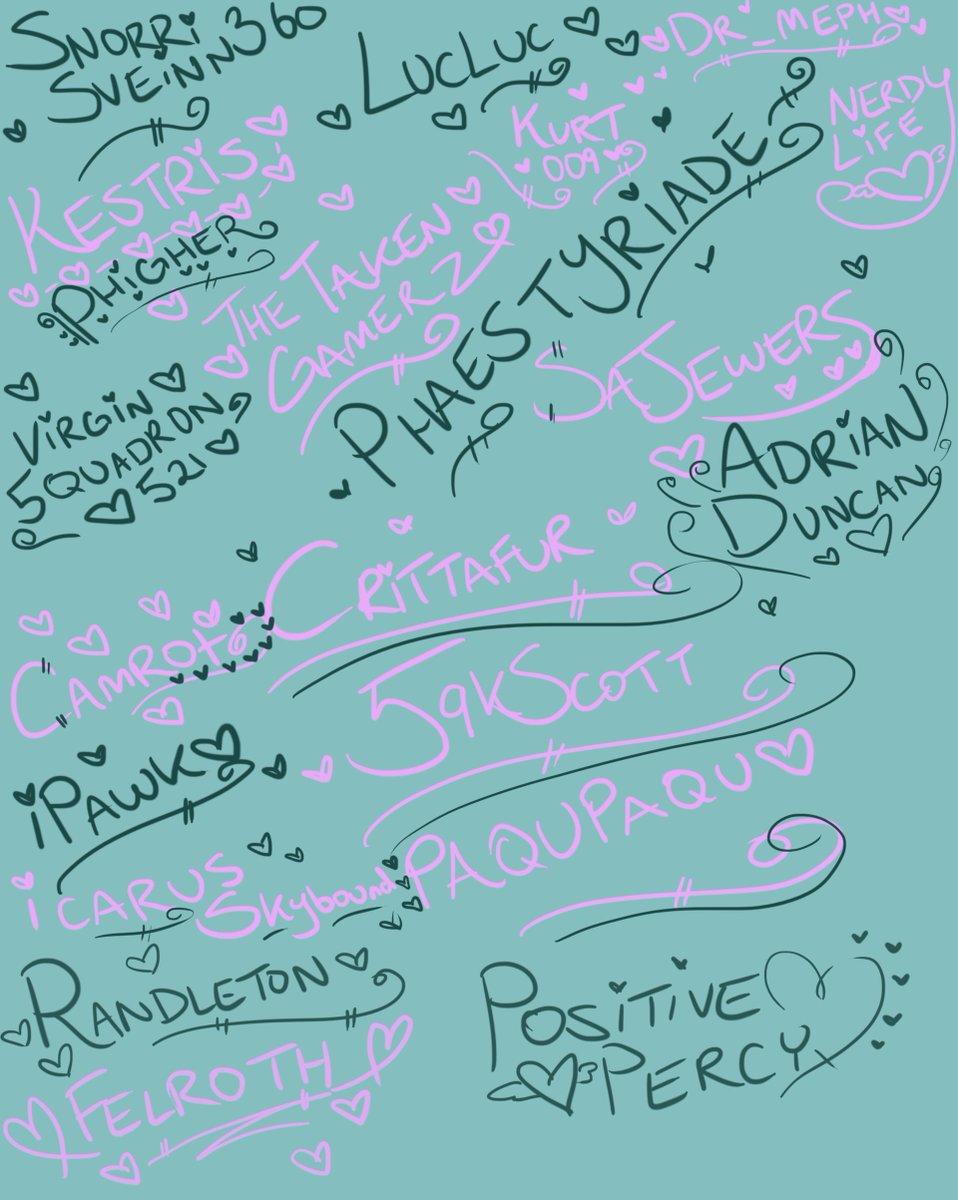 Snorri
Sveinn360
LucLuc
Dr_meph
Kurt
009
Nerdy
Life
Kestris
Phigher
The Taken
Gamerz
Phaestyriade
SaJewers
Virgin
Squadron
521
Adrian
Duncan
Crittafur
Camrot
59kScott
iPawk
PaquPaqu
icarus
Skybound
Randleton
Positive
Percy
Felroth